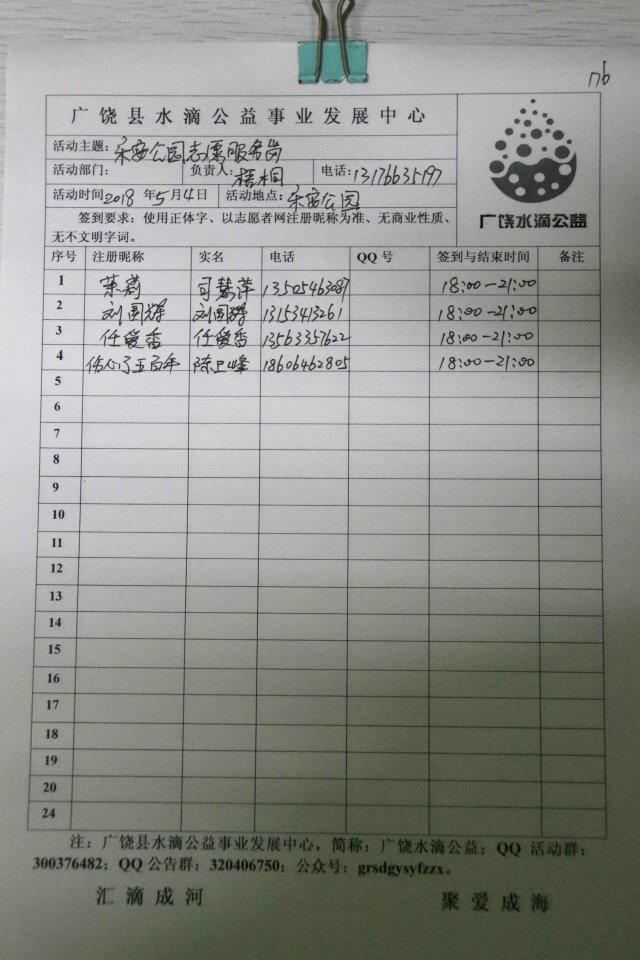 176
广饶县水滴公益事业发展中心
活动主题：乐安公园志愿服务岗
活动部门： 负责人：梧桐 电话：13176635197
活动时间2018 年5月4日 活动地点：乐安公园
签到要求：使用正体字、以志愿者网注册昵称为准、无商业性质、
无不文明字词。
广饶水滴公益
序号 注册昵称 实名 电话 QQ号 签到与结束时间 备注
1 茉莉 司慧萍 13505463087 18:00-21:00
2 刘国辉 刘国辉 13153413261 18:00-21:00
3 任爱香 任爱香 13563357622 18:00-21:00
4 伤心了五百年 陈卫峰 18606462805 18:00-21:00
5
6
7
8
9
10
11
12
13
14
15
16
17
18
19
20
24
注：广饶县水滴公益事业发展中心，简称：广饶水滴公益；QQ 活动群：
300376482；QQ公告群：320406750；公众号：grsdgysyfzzx。
汇滴成河 聚爱成海